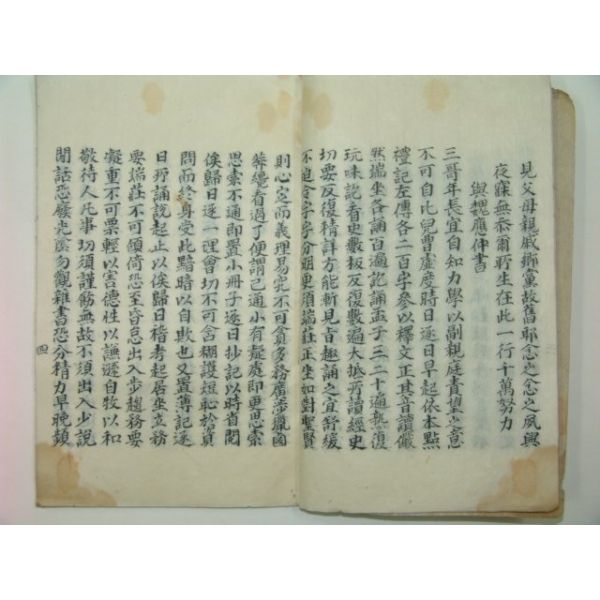 見父母親戚鄉黨故舊耶念之念之夙興
夜寐無忝爾所生在此一行十萬努力
與魏應仲書
三哥年長宜自知力學以副親庭責望之意
不可自比兒曹虛度時日逐日早起依本點
禮記左傳各二百字參以釋文正其音讀儼
然端坐各誦百遍訖誦孟子三二十遍熟復
玩味訖看史數板反復數遍大抵所讀經史
切要反復精詳方能漸見旨趣誦之宜舒緩
不迫令字字分明更須端莊正坐如對聖賢
則心定而義理易究不可貪多務廣涉獵鹵
莽纔看過了便謂已通小有疑處即更思索
思索不通即置小冊子逐日抄記以時省閱
俟歸日逐一理會切不可含糊護短恥於資
問而終身受此黯暗以自欺也又置簿記逐
日所誦說起止以俟歸日稽考起居坐立務
要端莊不可傾倚恐至昏怠出入步趨務要
凝重不可票輕以害德性以謙遜自牧以和
敬待人凡事切須謹飭無故不須出入少說
閒話恐廢光陰勿觀雜書恐分精力早晚頻
四